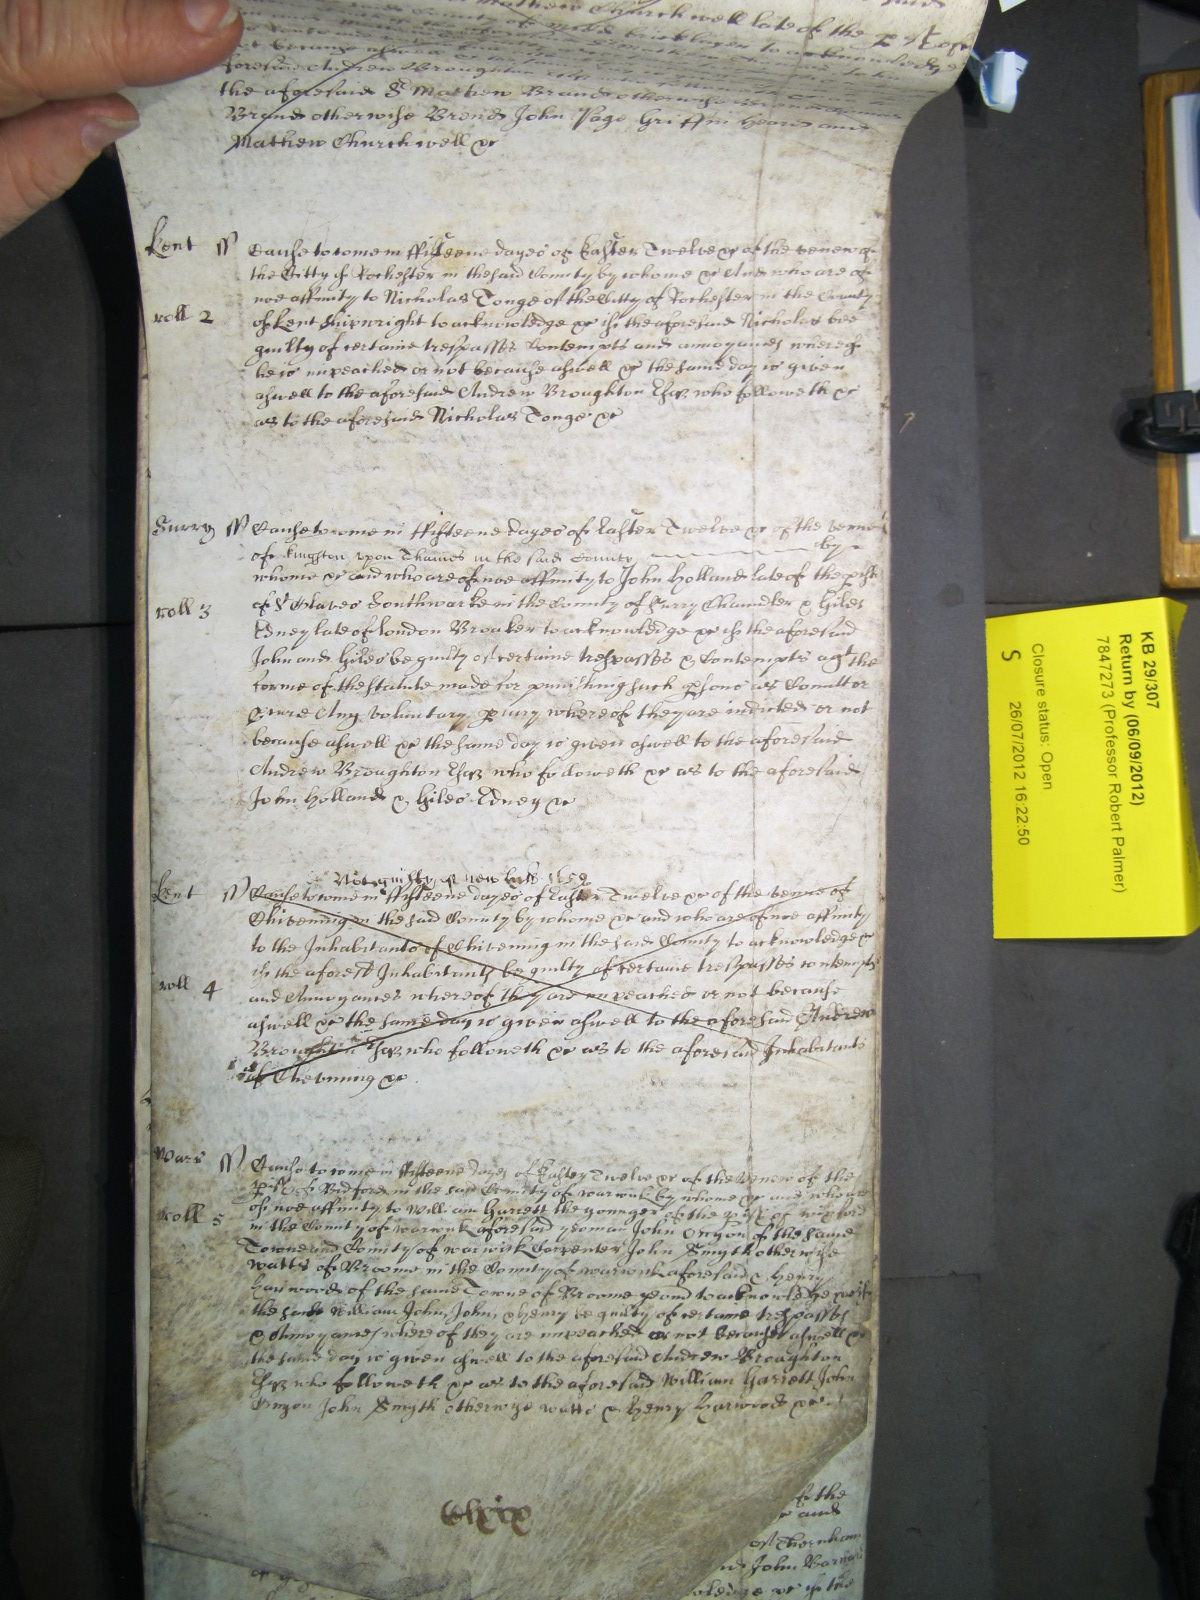 Mathew Churchwell late of the
the aforesaid Mathew Brand otherwise
Brand otherwise Brend John Page Griffin Heard and
Mathew Churchwell &c
Kent ss Cause to come in ffifteene dayes of Easter Twelve &c of the venew of
the Citty of Rochester in the said County by whome &c And who are of
noe affinity to Nicholas Tonge of the Citty of Rochester in the County
roll 2 of Kent Shipwright to acknowledge &c if the aforesaid Nicholas bee
guilty of certaine trespasses Contempts and annoyances whereof
he is impeached or not because aswell &c the same day is given
aswell to the aforesaid Andrew Broughton Esqr who followeth &c
as to the aforesaid Nicholas Tonge &c
Surry ss Cause to come in ffifteene dayes of Easter Twelve &c of the venew
of Kingston upon Thames in the said County by
whome &c and who are of noe affinity to John Holland late of the pish
roll 3 of St Olaves Southwarke in the County of Surry Chandler & Giles
Edney late of London Broaker to acknowledge &c if the aforesaid
John and Giles be guilty of certaine trespasses & Contempts agt the
forme of the statute made for punishing such psons as Comitt or
Any voluntary piury whereof they are indicted or not
because aswell &c the same day is given aswell to the aforesaid
Andrew Broughton Esqr who followeth &c as to the aforesaid
John Holland & Giles Edney &c
Not guilty
Kent ss Cause to come in ffifteene dayes of Easter Twelve &c of the venue of
Chevening in the said County by whome &c and who are of noe affinity
to the Inhabitants of Chevening in the said County to acknowledge &c
if the aforesd Inhabitants be guilty of certaine trespasses contempts
roll 4 and Annoyances whereof they are impeached or not because
aswell &c the same day is given aswell to the aforesaid Andrew
Broughton Esqr who followeth &c as to the aforesaid Inhabitants
of Chevening &c
Warr ss Cause to come in ffifteene dayes of Easter Twelve &c of the venew of the
pish of Bidford in the said County of Warwick by whome &c and who are
roll 5 of noe affinity to William Garrett the younger of the pish of
in the County of Warwick aforesaid yeoman John of the same
Towne and County of Warwick Carpenter John Smyth otherwise
Watts of Broome in the County of Warwick aforesaid & Henry
Harwood of the same Towne of Broome yeom to acknowledge &c if
the said William John John & Henry be guilty of certaine trespasses
& Annoyances whereof they are impeached or not because aswell &c
the same day is given aswell to the aforesaid Andrew Broughton
Esqr who followeth &c as to the aforesaid William Garrett John
John Smyth otherwise Watts & Henry Harwood &c
of the
&c and
of
and John
&c if the
KB 29/307
Return by (06/09/2012)
7847273 (Professor Robert Palmer)
Closure status: Open
S 26/07/2012 16:22:50